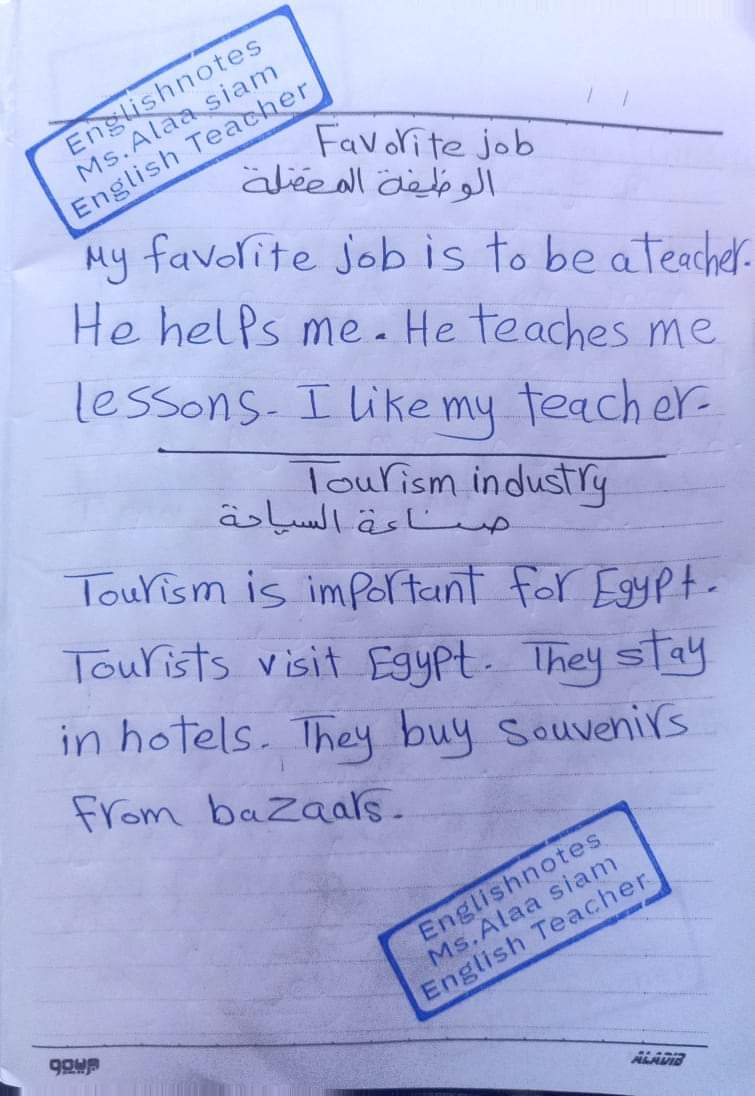 Englishnotes
Ms.Alaa siam
English Teacher
Favorite job
الوظيفة المفضلة
My favorite job is to be a teacher.
He helps me. He teaches me
lessons. I like my teacher.
Tourism industry
صناعة السياحة
Tourism is important for Egypt.
Tourists visit Egypt. They stay
in hotels. They buy souvenirs
from bazaars.
Englishnotes
Ms.Alaa siam
English Teacher
ALADIB